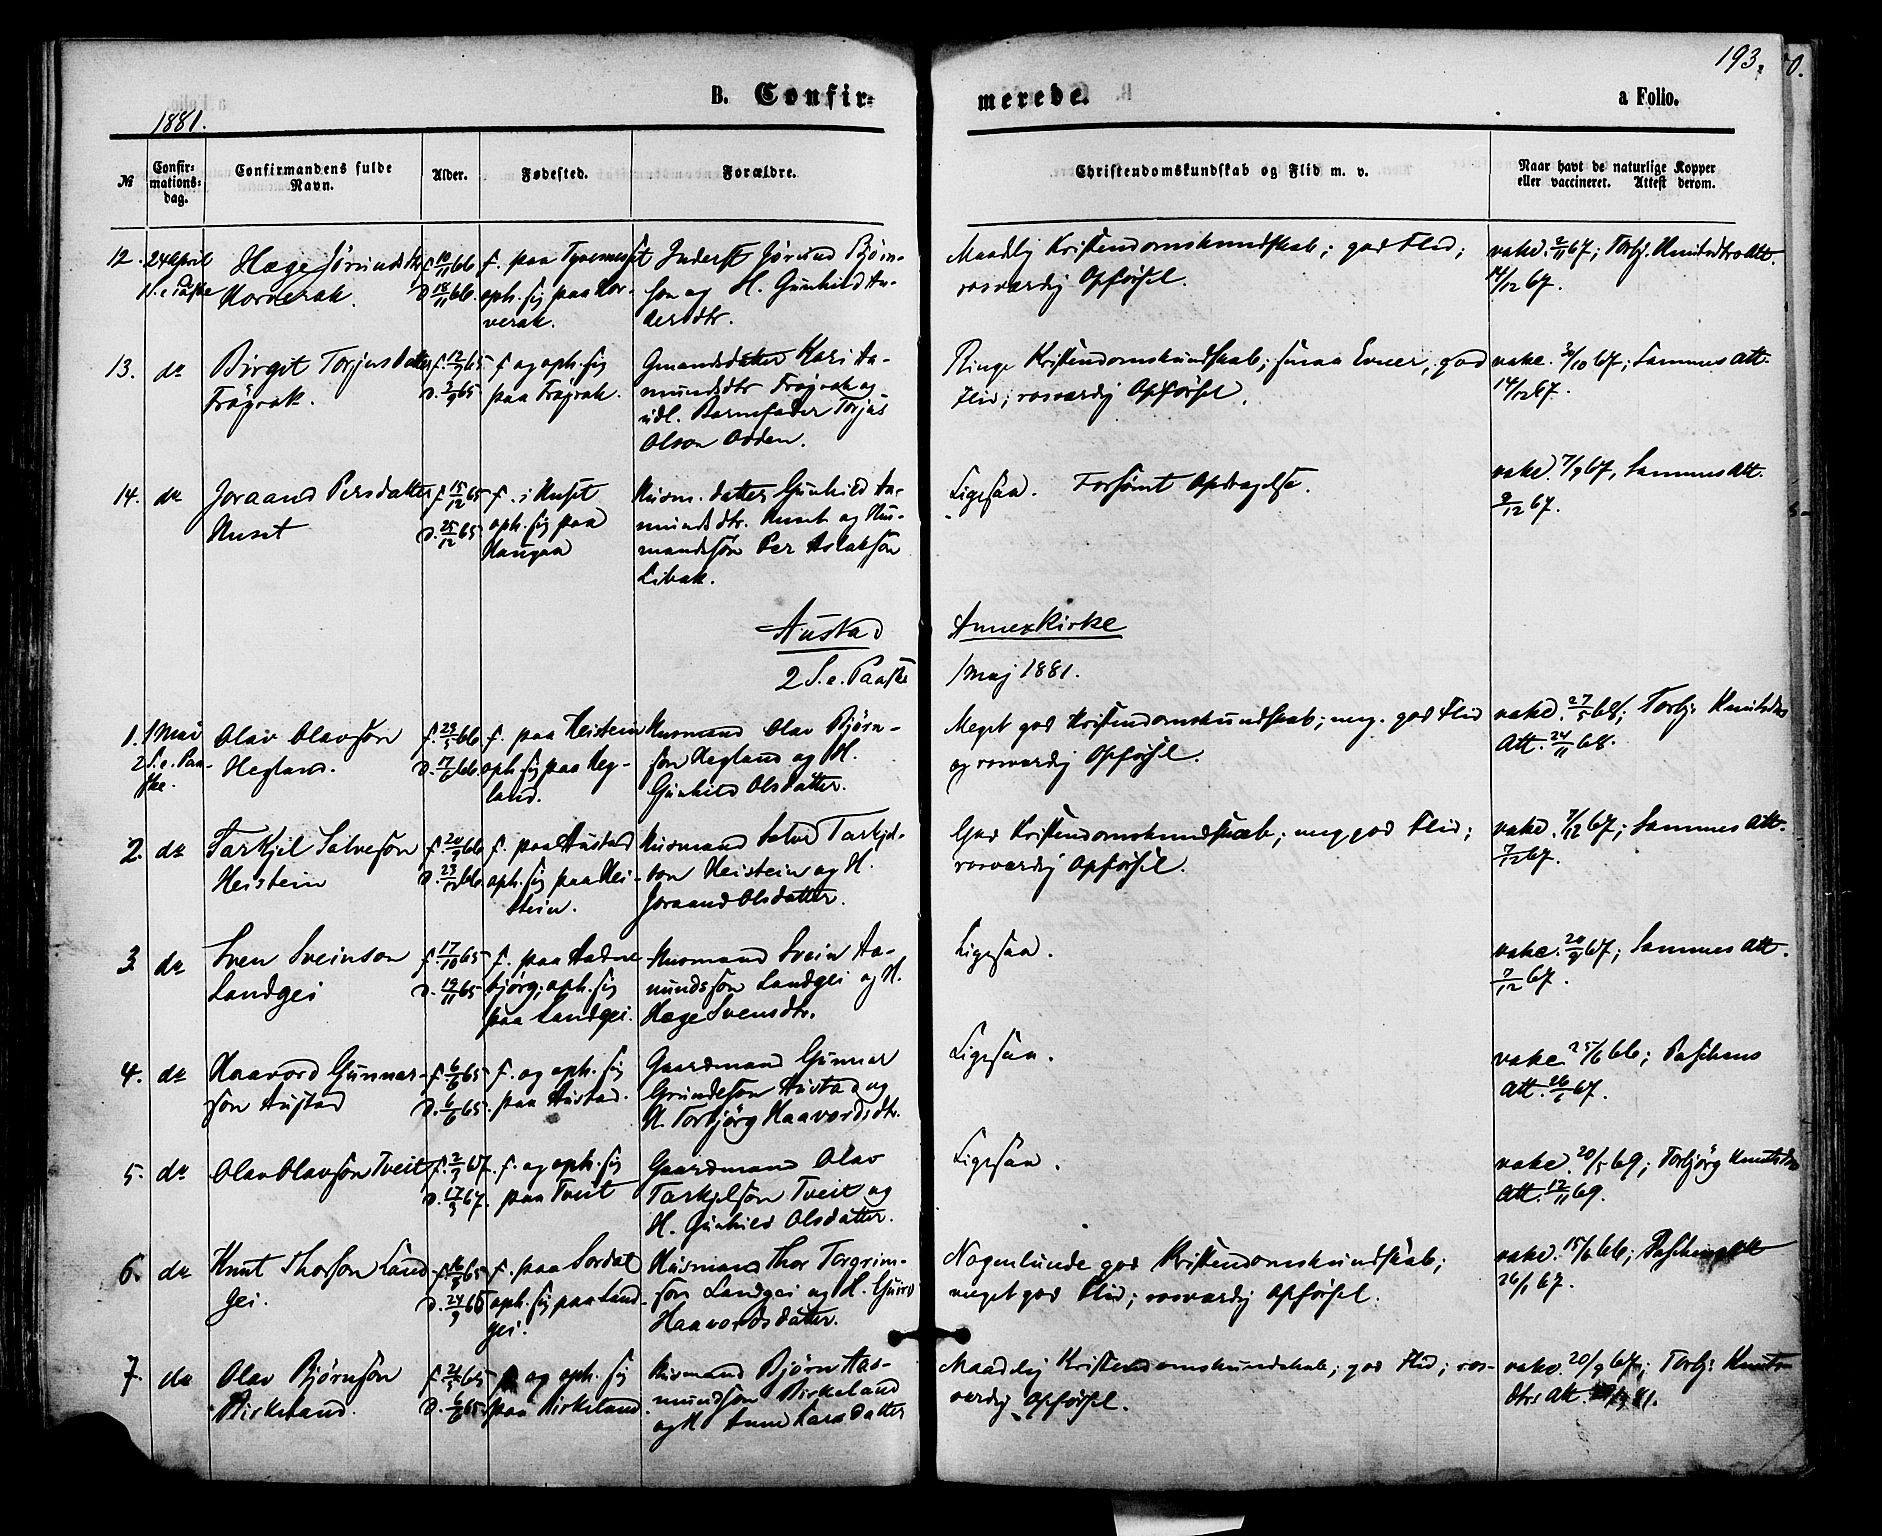 193.
B. Confir-
merede.
a Folio.
1881.
№
Confir-
mations-
dag.
Confirmandens fulde
Navn.
Alder.
Fødested.
Forældre.
Christendomskundskab og Flid m. v.
Naar havt de naturlige Kopper
eller vaccineret. Attest derom.
12. 24 April
1 S. e. Paaske
Hæge Jørunds dtr
Korverak.
f. 10/11 66
d. 18/11 66.
f. paa
oph. sig paa Kor-
verak.
Inderst Jørund Bjørn-
son og H. Gunhild An-
dersdtr.
Maadlig Kristendomskundskab; god Flid;
rosværdig Opførsel.
vakc. 2/11 67; Torbj. Knutsdtrs Att.
14/12 67.
13. do
Birgit Torjusdatter
Frøyrak.
f. 12/7 65
d. 3/9 65
f. og oph. sig
paa Frøyrak.
Gmandsdatter Kari Aa-
mundsdtr Frøyrak og
udl. Barnefader Torjus
Olson Odden.
Ringe Kristendomskundskab; smaa Evner, god
Flid; rosværdig Opførsel.
vakc. 3/10 67; Sammes Att.
14/12 67.
14. do
Joraand Persdatter
Huset
f. 15/12 65
d. 25/12 65
f. i Huset
oph. sig paa
Haugaa
Husm. datter Gunhild Aa-
mundsdtr. Huset og Hus-
mandssøn Per Aslakson
Libak.
Ligesaa. Forsømt Opdragelse.
vakc. 7/9 67, Sammes Att.
9/12 67.
Austad
Annexkirke
2 S. e. Paaske
1 Maj 1881.
1. 1 Mai
2 S. e. Paa-
ske.
Olav Olavson
Hegland.
f. 23/5 66
d. 17/6 66.
f. paa Heistein
oph. sig paa Heg-
land.
Husmand Olav Bjørn-
son Hegland og H.
Gunhild Olsdatter.
Meget god Kristendomskundskab; meg. god Flid
og rosværdig Opførsel.
vakc. 27/5 68; Torbj. Knutsdtrs
Att. 24/11 68.
2. do
Tarkjel Salveson
Heistein
f. 20/9 66
d. 23/12 66.
f. paa Austad
oph. sig paa Hei-
stein.
Husmand Salve Tarkjel-
son Heistein og H.
Joraand Olsdatter.
God Kristendomskundskab; meg god Flid;
rosværdig Opførsel.
vakc. 7/12 67; Sammes Att.
7/12 67.
3. do
Sven Sveinson
Landgei
f. 17/10 65
d. 19/11 65
f. paa Aadne-
bjørg; oph. sig
paa Landgei.
Husmand Svein Aa-
nundsson Landgei og H.
Hæge Svensdtr.
Ligesaa.
vakc. 20/9 67; Sammes Att.
7/12 67.
4. do
Haavord Gunnar-
son Austad
f. 6/6 65
d. 6/6 65
f. og oph. sig
paa Austad.
Gaardmand Gunnar
Grundeson Austad og
H. Torbjørg Haavordsdtr.
Ligesaa.
vakc. 25/6 66; Paschens
Att. 26/6 67.
5. do
Olav Olavson Tveit
f. 2/3 67.
d. 17/3 67.
f. og oph. sig
paa Tveit
Gaardmand Olav
Tarkjelson Tveit og
H. Gunhild Olsdatter.
Ligesaa.
vakc. 20/5 69; Torbjørg Knutsdtrs
Att. 12/11 69.
6. do
Knut Thorson Land-
gei.
f. 16/8 65
d. 24/9 65
f. paa Sordal
oph. sig paa Land-
gei.
Husmand Thor Torgrim-
son Landgei og H. Guro
Haavordsdatter.
Nogenlunde god Kristendomskundskab;
meget god Flid; rosværdig Opførsel.
vakc. 15/6 66; Paschens Att
26/1 67.
7. do
Olav Bjørnson
Birkeland.
f. 21/5 65
d. 6/6 65
f. og oph. sig
paa Birkeland
Husmand Bjørn Aas-
mundson Birkeland
og H. Anne Larsdatter
Maadelig Kristendomskundskab; god Flid; ros-
værdig Opførsel.
vakc. 20/9 67; Torbj. Knuts-
dtrs Att. 81.